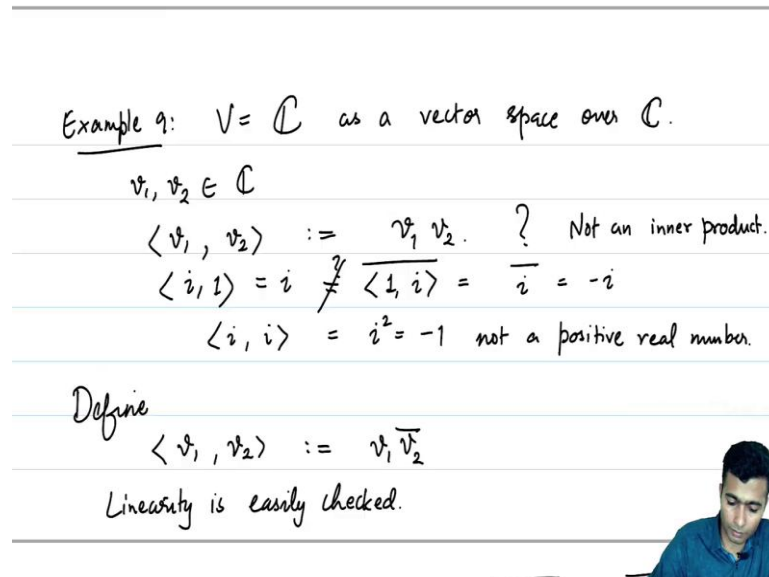 Example 9: V = ℂ as a vector space over ℂ.
v₁, v₂ ∈ ℂ
⟨v₁, v₂⟩ := v₁ v₂. ? Not an inner product.
⟨i, 1⟩ = i ≠? \overline{⟨1, i⟩} = \overline{i} = -i
⟨i, i⟩ = i² = -1 not a positive real number.
Define
⟨v₁, v₂⟩ := v₁ \overline{v₂}
Linearity is easily checked.